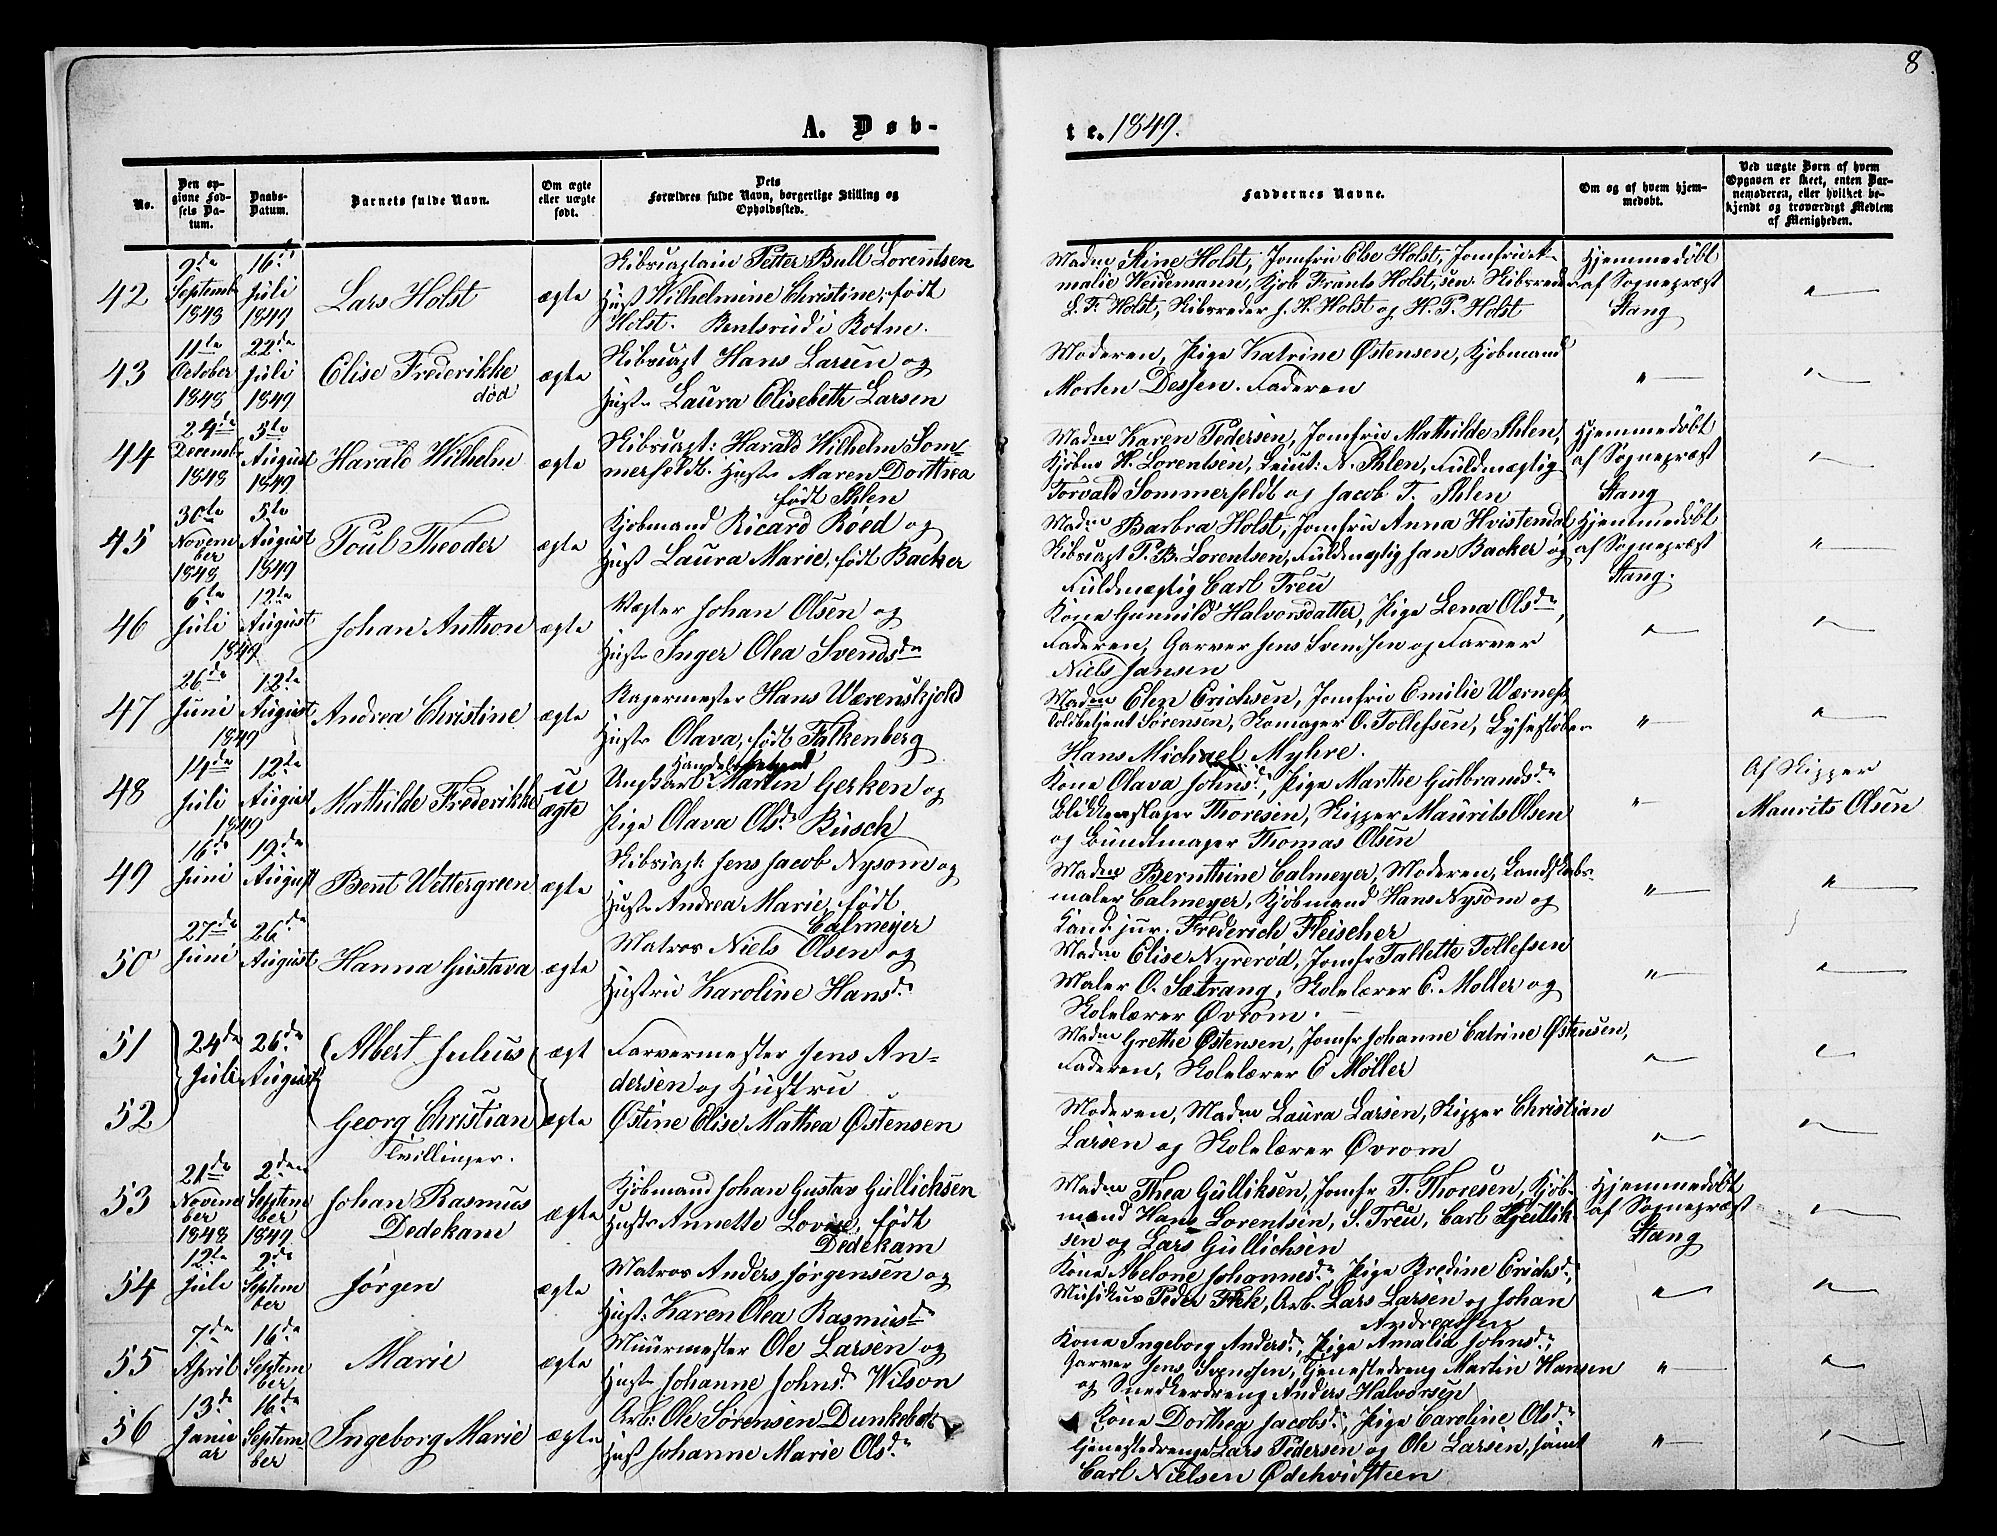 8.
A. Døb-
te. 1849.
No.
Den op-
givne Fød-
sels Da-
tum.
Daabs-
Datum.
Barnets fulde Navn.
Om ægte
eller uægte
født.
Dets
Forældres fulde Navn, borgerlige Stilling og
Opholdssted.
Faddernes Navne.
Om og af hvem hjem-
medøbt.
Ved uægte Børn af hvem
Opgaven er skeet, enten Bar-
nemoderen, eller hvilket be-
kjendt og troværdigt Medlem
af Menigheden.
42
9de
Septemb
1848
16de
Juli
1849
Lars Holst
ægte
Skibscaptain Petter Bull Lorentsen
Hust Wilhelmine Christine, født
Holst. Bentsrud i Botne.
Madm Stine Holst, Jomfru Else Holst, Jomfru A-
malie Heidemann, Kjøb Frants Holst, sen. Skibsreder
L. F. Holst, Skibsreder J. H. Holst og H. P. Holst
Hjemmedøbt
af Sognepræst
Stang
43
11te
October
1848
22de
Juli
1849
Elise Frederikke
død
ægte
Skibscapt Hans Larsen og
Hust. Laura Elisebeth Larsen
Moderen, Pige Katrine Østensen, Kjøbmand
Morten Dessen. Faderen
44
24de
Decemb
1848
5te
August
1849
Harald Wilhelm
ægte
Skibscapt: Harald Wilhelm Som-
merfeldt. Hust. Maren Dorthea
født Ihlen
Madm Karen Pedersen, Jomfru Mathilde Ihlen,
Kjøbm H. Lorentsen, Leiut: N. Ihlen, Fuldmægtig
Torvald Sommerfeldt og Jacob T. Ihlen
Hjemmedøbt
af Sognepræst
Stang
45
30te
Novem
ber
1848
5te
August
1849
Poul Theoder
ægte
Kjøbmand Ricard Røed og
Hust Laura Marie, født Backer
Madm Barbra Holst, Jomfru Anna Hvistendal
Skibscapt P. B. Lorentsen, Fuldmægtig Jan Backer og
Fuldmægtig Carl Treu
Hjemmedøbt
af Sognepræst
Stang.
46
6te
Juli
12te
August
1849
Johan Anthon
ægte
Vægter Johan Olsen og
Hust. Inger Olea Svendsda
Kone Gunnild Halvorsdatter, Pige Lena Olsda,
Faderen, Garver Jens Svendsen og Farver
Niels Jansen
47
26de
Juni
12te
August
1849
Andrea Christine
ægte
Bagermester Hans Wærenskjold
Hust. Olava, født Falkenberg
Madm Elen Erichsen, Jomfru Emilie Wærness,
Toldbetjent Sørensen, Skomager O. Tollefsen, Lysestøber
Hans Michael Myhre.
48
14de
Juli
12te
August
1849
Mathilde Frederikke
u
ægte
Handelsbetjend
Ungkarl Martin Gerken og
Pige Olava Olsda Busch
Kone Olava Johnsd, Pige Marthe Gulbrandsda
Blikkenslager Thoresen, Skipper Maurits Olsen
og Bundtmager Thomas Olsen
Af Skipper
Maurits Olsen
49
16de
Juni
19de
August
Bent Wettergreen
ægte
Skibscapt: Jens Jacob Nysom og
Hust. Andrea Marie, født
Calmeyer
Madm Bernthine Calmeyer, Moderen, Landskabs-
maler Calmeyer, Kjøbmand Hans Nysom og
Cand. jur. Frederich Fleischer
50
27de
Juni
26de
August
Hanna Gustava
ægte
Matros Niels Olsen og
Hustru Karoline Hansda
Madm Elise Nyrerød, Jomfr Tallette Tollefsen
Maler O. Sætrang, Skolelærer C. Møller og
Skolelærer Øvrom.
51
24de
Juli
26de
August
Albert Julius
ægt
Farvermester Jens An-
dersen og Hustru
Madm Grethe Østensen, Jomfr Johanne Catrine Østensen,
Faderen, Skolelærer C Møller
52
Georg Christian
Tvillinger.
ægte
Østine Elise Mathea Østensen
Moderen, Madm Laura Larsen, Skipper Christian
Larsen og Skolelærer Øvrom
53
21de
Novem
ber
1848
2den
Septem
ber
1849
Johan Rasmus
Dedekam
ægte
Kjøbmand Johan Gustav Gullichsen
Hust. Annette Lovise, født
Dedekam
Madm Thea Gulliksen, Jomfr T. Thoresen, Kjøb-
mand Hans Lorentsen, S. Treu, Carl Gullik-
sen og Lars Gullichsen
Hjemmedøbt
af Sognepræst
Stang
54
12te
Juli
2de
Septem
ber
Jørgen
ægte
Matros Anders Jørgensen og
Hust: Karen Olea Rasmusda
Kone Abelone Johannesda, Pige Bredine Erichsda,
Musikus Peder Fkk, Arb. Lars Larsen og Johan
Andreassen
55
7de
April
16de
Septem
ber
Marie
ægte
Muurmester Ole Larsen og
Hust. Johanne Johnsd. Wilson
Kone Ingeborg Andersd., Pige Amalia Johnsd.,
Garver Jens Svendsen, Tjenestedreng Martin Hansen
og Snedkerdreng Anders Halvorsen
56
13de
Janu
ar
16de
Septem
ber
Ingeborg Marie
ægte
Arb: Ole Sørensen Dunkebek
Hust Johanne Marie Olsda
Kone Dorthea Jacobsd., Pige Caroline Olsda
Tjenestedrenge Lars Pedersen og Ole Larsen, samt
Carl Nielsen Ødehvidsteen